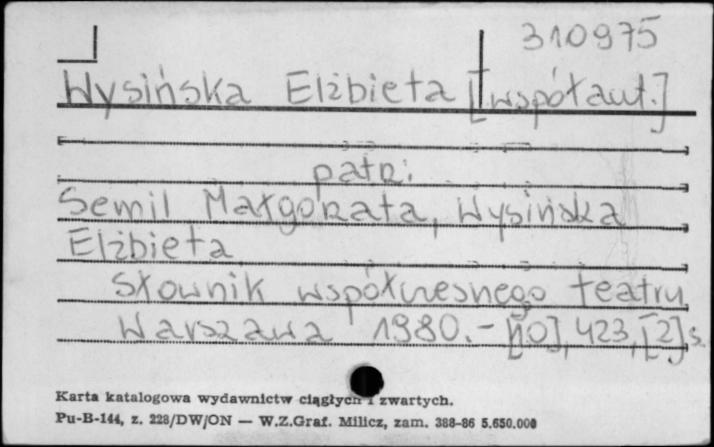 310975
Wysińska Elżbieta [współaut.]
patrz:
Semil Małgorzata, Wysińska
Elżbieta
Słownik współczesnego teatru
Warszawa 1980.- [10], 423, [2] s.
Karta katalogowa wydawnictw ciągłych i zwartych.
Pu-B-144, z. 228/DW/ON — W.Z.Graf. Milicz, zam. 388-86 5.650.000